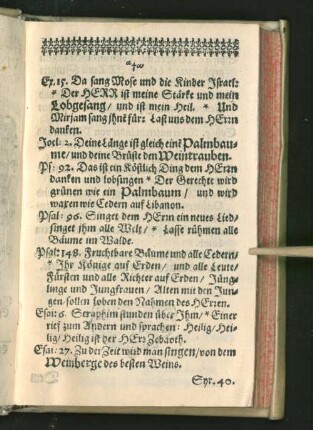 Ex. 15. Da sang Mose und die Kinder Israel:
* Der HERR ist meine Stärke und mein
Lobgesang / und ist mein Heil. * Und
Mirjam sang ihnē für: Last uns dem HErrn
danken.
Joel: 2. Deine Länge ist gleich einē Palmbau-
me / und deine Brüste den Weintrauben.
Ps: 92. Das ist ein Köstlich Ding dem HErn
danken und lobsingen * Der Gerechte wird
grünen wie ein Palmbaum / und wird
waxen wie Cedern auf Libanon.
Psal: 96. Singet dem HErrn ein neues Lied /
singet ihm alle Welt / * Lasse rühmen alle
Bäume im Walde.
Psal: 148. Fruchtbare Bäume und alle Cedern /
* Ihr Könige auf Erden / und alle Leute /
Fürsten und alle Richter auf Erden / Jüng-
linge und Jungfrauen / Alten mit den Jun-
gen sollen loben den Nahmen des HErren.
Esai: 6. Seraphim stunden über Ihm / * Einer
rief zum Andern und sprachen: Heilig / Hei-
lig / Heilig ist der HErr Zebaoth.
Esai: 27. Zu der Zeit wird man singen / von dem
Weinberge des besten Weins.
Syr. 40.